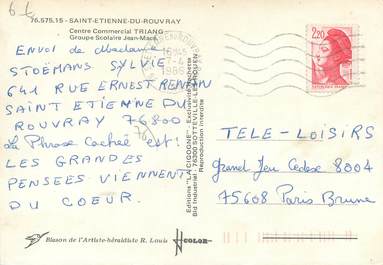 6 €
76.575.15 - SAINT-ETIENNE-DU-ROUVRAY
Centre Commercial TRIANG
Groupe Scolaire Jean-Macé
ENVOI de Madame
STOËMANS SYLVIE
641 RUE ERNEST RENAN
SAINT ETIENNE DU
ROUVRAY 76800
LA Phrase Cachée est:
LES GRANDES
PENSEES VIENNENT
DU COEUR.
1986
Editions "LA CIGOGNE"
76300 SOTTEVILLE-LES-ROUEN
Reproduction interdite
2,20
TELE-LOISIRS
Grand Jeu Cedex 8004
75608 Paris Brune
Blason de l'Artiste-héraldiste R. Louis
COLOR